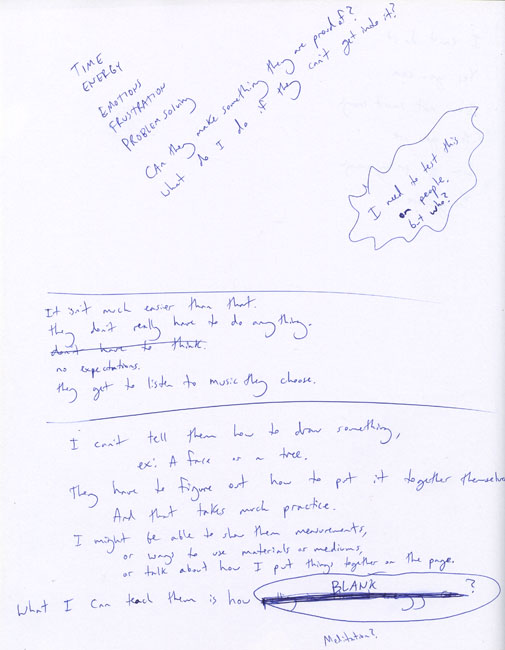 TIME
ENERGY
EMOTIONS
FRUSTRATION
PROBLEM solving
CAn they make something they are proud of?
what do I do if they can't get into it?
I need to test this
on people.
but who?
It isn't much easier than that.
they don't really have to do anything.
don't have to think.
no expectations.
they get to listen to music they choose.
I can't tell them how to draw something,
ex: A face or a tree.
They have to figure out how to put it together themselves
And that takes much practice.
I might be able to show them measurements,
or ways to use materials or mediums,
or talk about how I put things together on the page.
What I can teach them is how BLANK ?
Meditation?